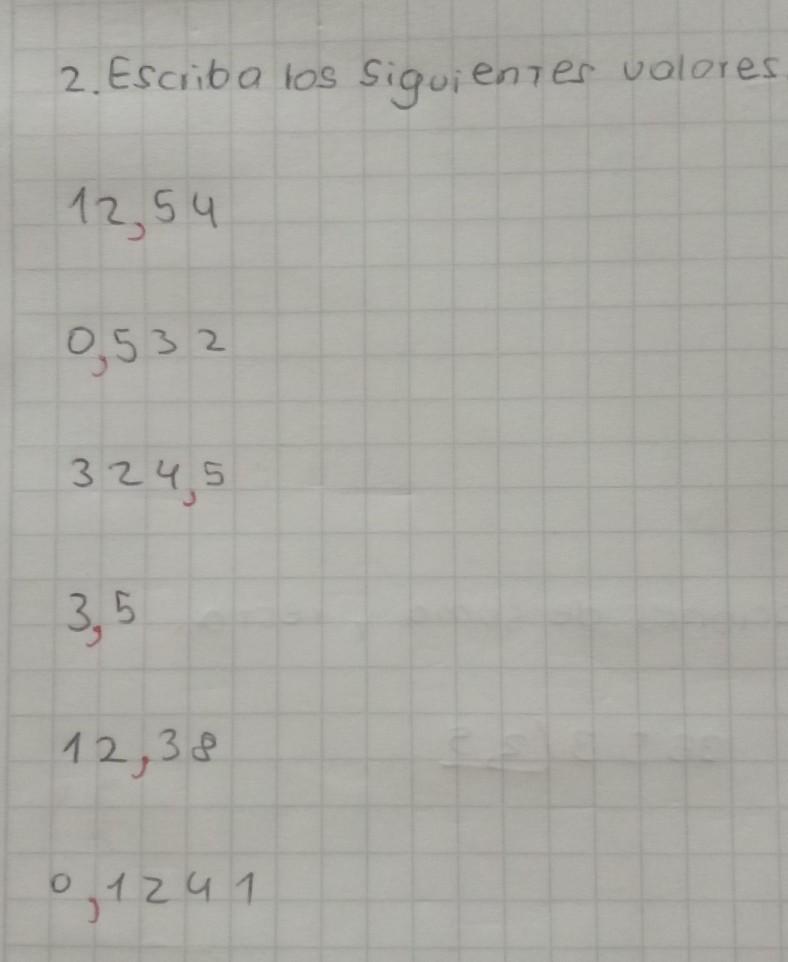 2. Escriba los siguientes valores
12,54
0,532
324,5
3,5
12,38
0,1241